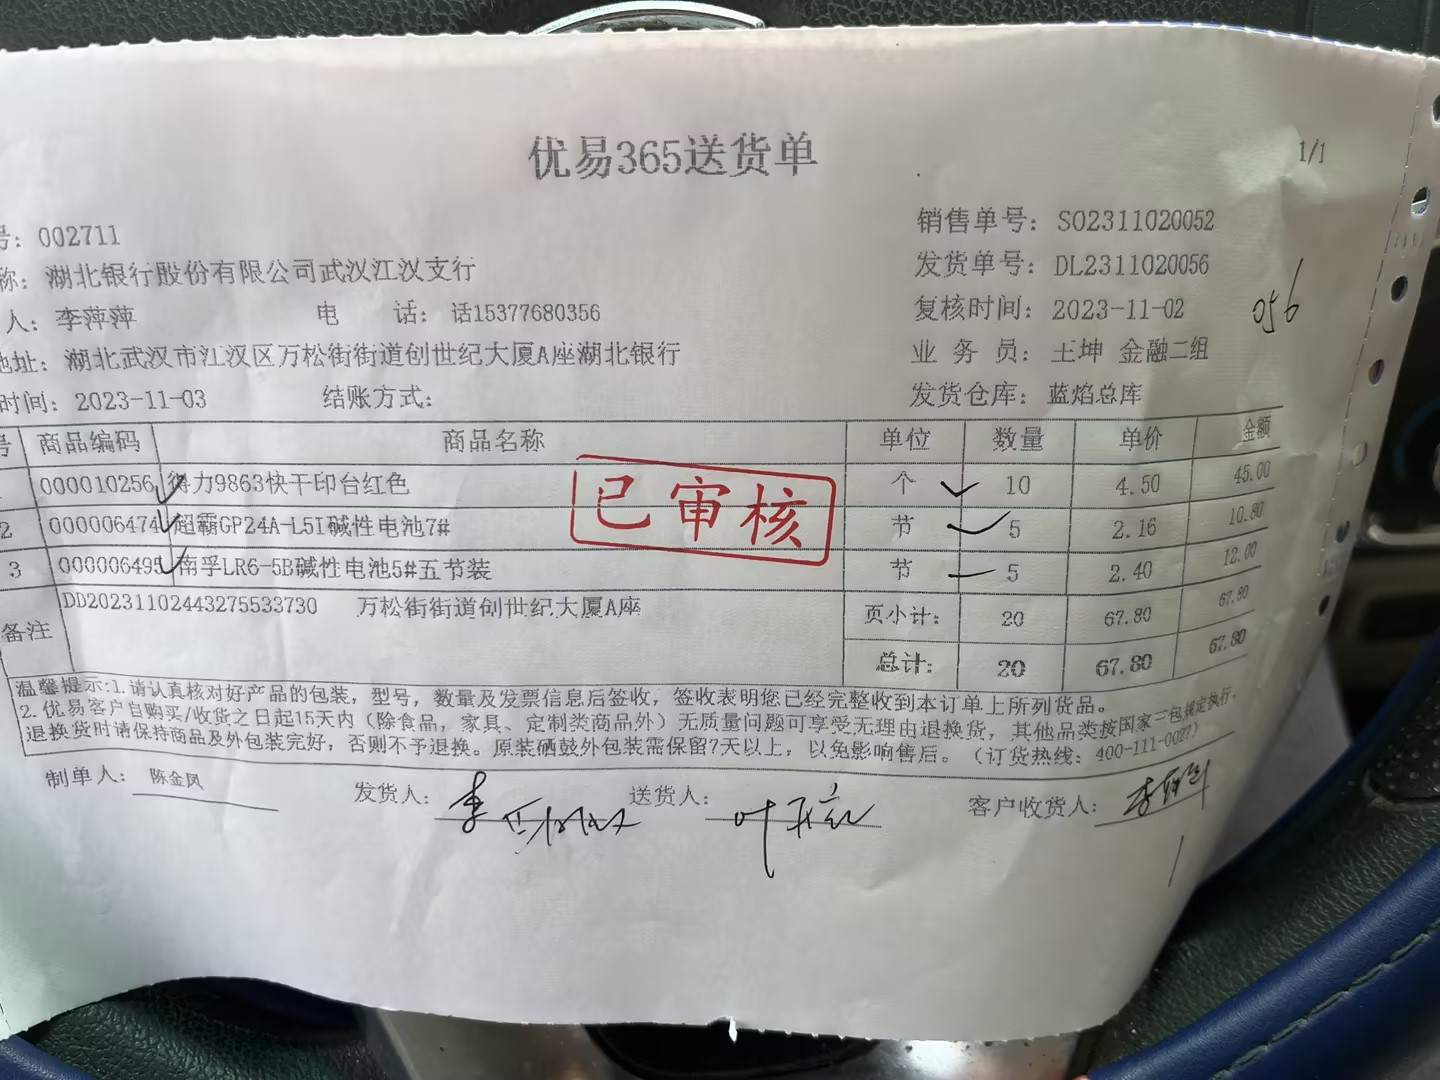 优易365送货单
1/1
号：002711
销售单号：SO2311020052
称：湖北银行股份有限公司武汉江汉支行
发货单号：DL2311020056
人：李萍萍 电 话：话15377680356
复核时间：2023-11-02
056
地址：湖北武汉市江汉区万松街街道创世纪大厦A座湖北银行
业 务 员：王坤 金融二组
时间：2023-11-03 结账方式：
发货仓库：蓝焰总库
号 商品编码 商品名称 单位 数量 单价 金额
000010256 得力9863快干印台红色 个 10 4.50 45.00
2 000006474 超霸GP24A-L5I碱性电池7# 节 5 2.16 10.80
3 000006495 南孚LR6-5B碱性电池5#五节装 节 5 2.40 12.00
已审核
备注 DD20231102443275533730 万松街街道创世纪大厦A座 页小计： 20 67.80 67.80
总计： 20 67.80 67.80
温馨提示:1.请认真核对好产品的包装，型号，数量及发票信息后签收，签收表明您已经完整收到本订单上所列货品。
2.优易客户自购买/收货之日起15天内（除食品，家具、定制类商品外）无质量问题可享受无理由退换货，其他品类按国家三包规定执行。
退换货时请保持商品及外包装完好，否则不予退换。原装硒鼓外包装需保留7天以上，以免影响售后。（订货热线：400-111-0027）
制单人： 陈金凤 发货人： 送货人： 客户收货人：